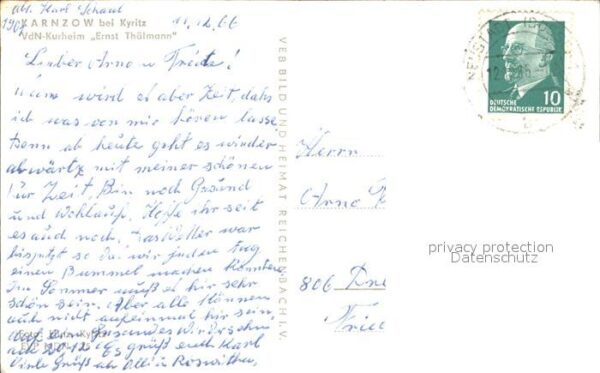 Abs. Karl Schaul
190
11.12.66
KARNZOW bei Kyritz
VdN-Kurheim „Ernst Thälmann"
Lieber Arno u. Friedel!
wird es aber Zeit, dahs
ich was von mir hören lasse.
Denn ab heute geht es wieder
abwärtz mit meiner schönen
Kur Zeit. Bin noch Gesund
und Wohlauf. Hoffe ihr seit
es auch noch. Das Wetter war
bisjetzt so das wir jeden Tag
einen Bummel machen konnten.
Im Sommer muß es hir sehr
schön sein. Aber alle können
auch nicht aufeinmal hir sein.
auf ein Gesundes Wiedersehn
am 20.12. Es grüßt euch Karl
Viele Grüß an Olli u Roswitha,
VEB BILD UND HEIMAT REICHENBACH I. V.
10
DEUTSCHE
DEMOKRATISCHE REPUBLIK
Herrn
Arno
806 Dre
privacy protection
Datenschutz